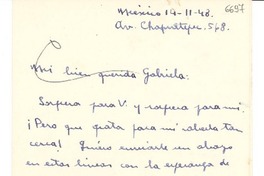 México 19-11-48.
Av. Chapultepec 568.
6697
Mi bien querida Gabriela:
Sorpresa para V. y sorpresa para mi.
¡Pero que grata para mi saberla tan
cerca! Quiero enviarle un abrazo
en estas líneas con la esperanza de